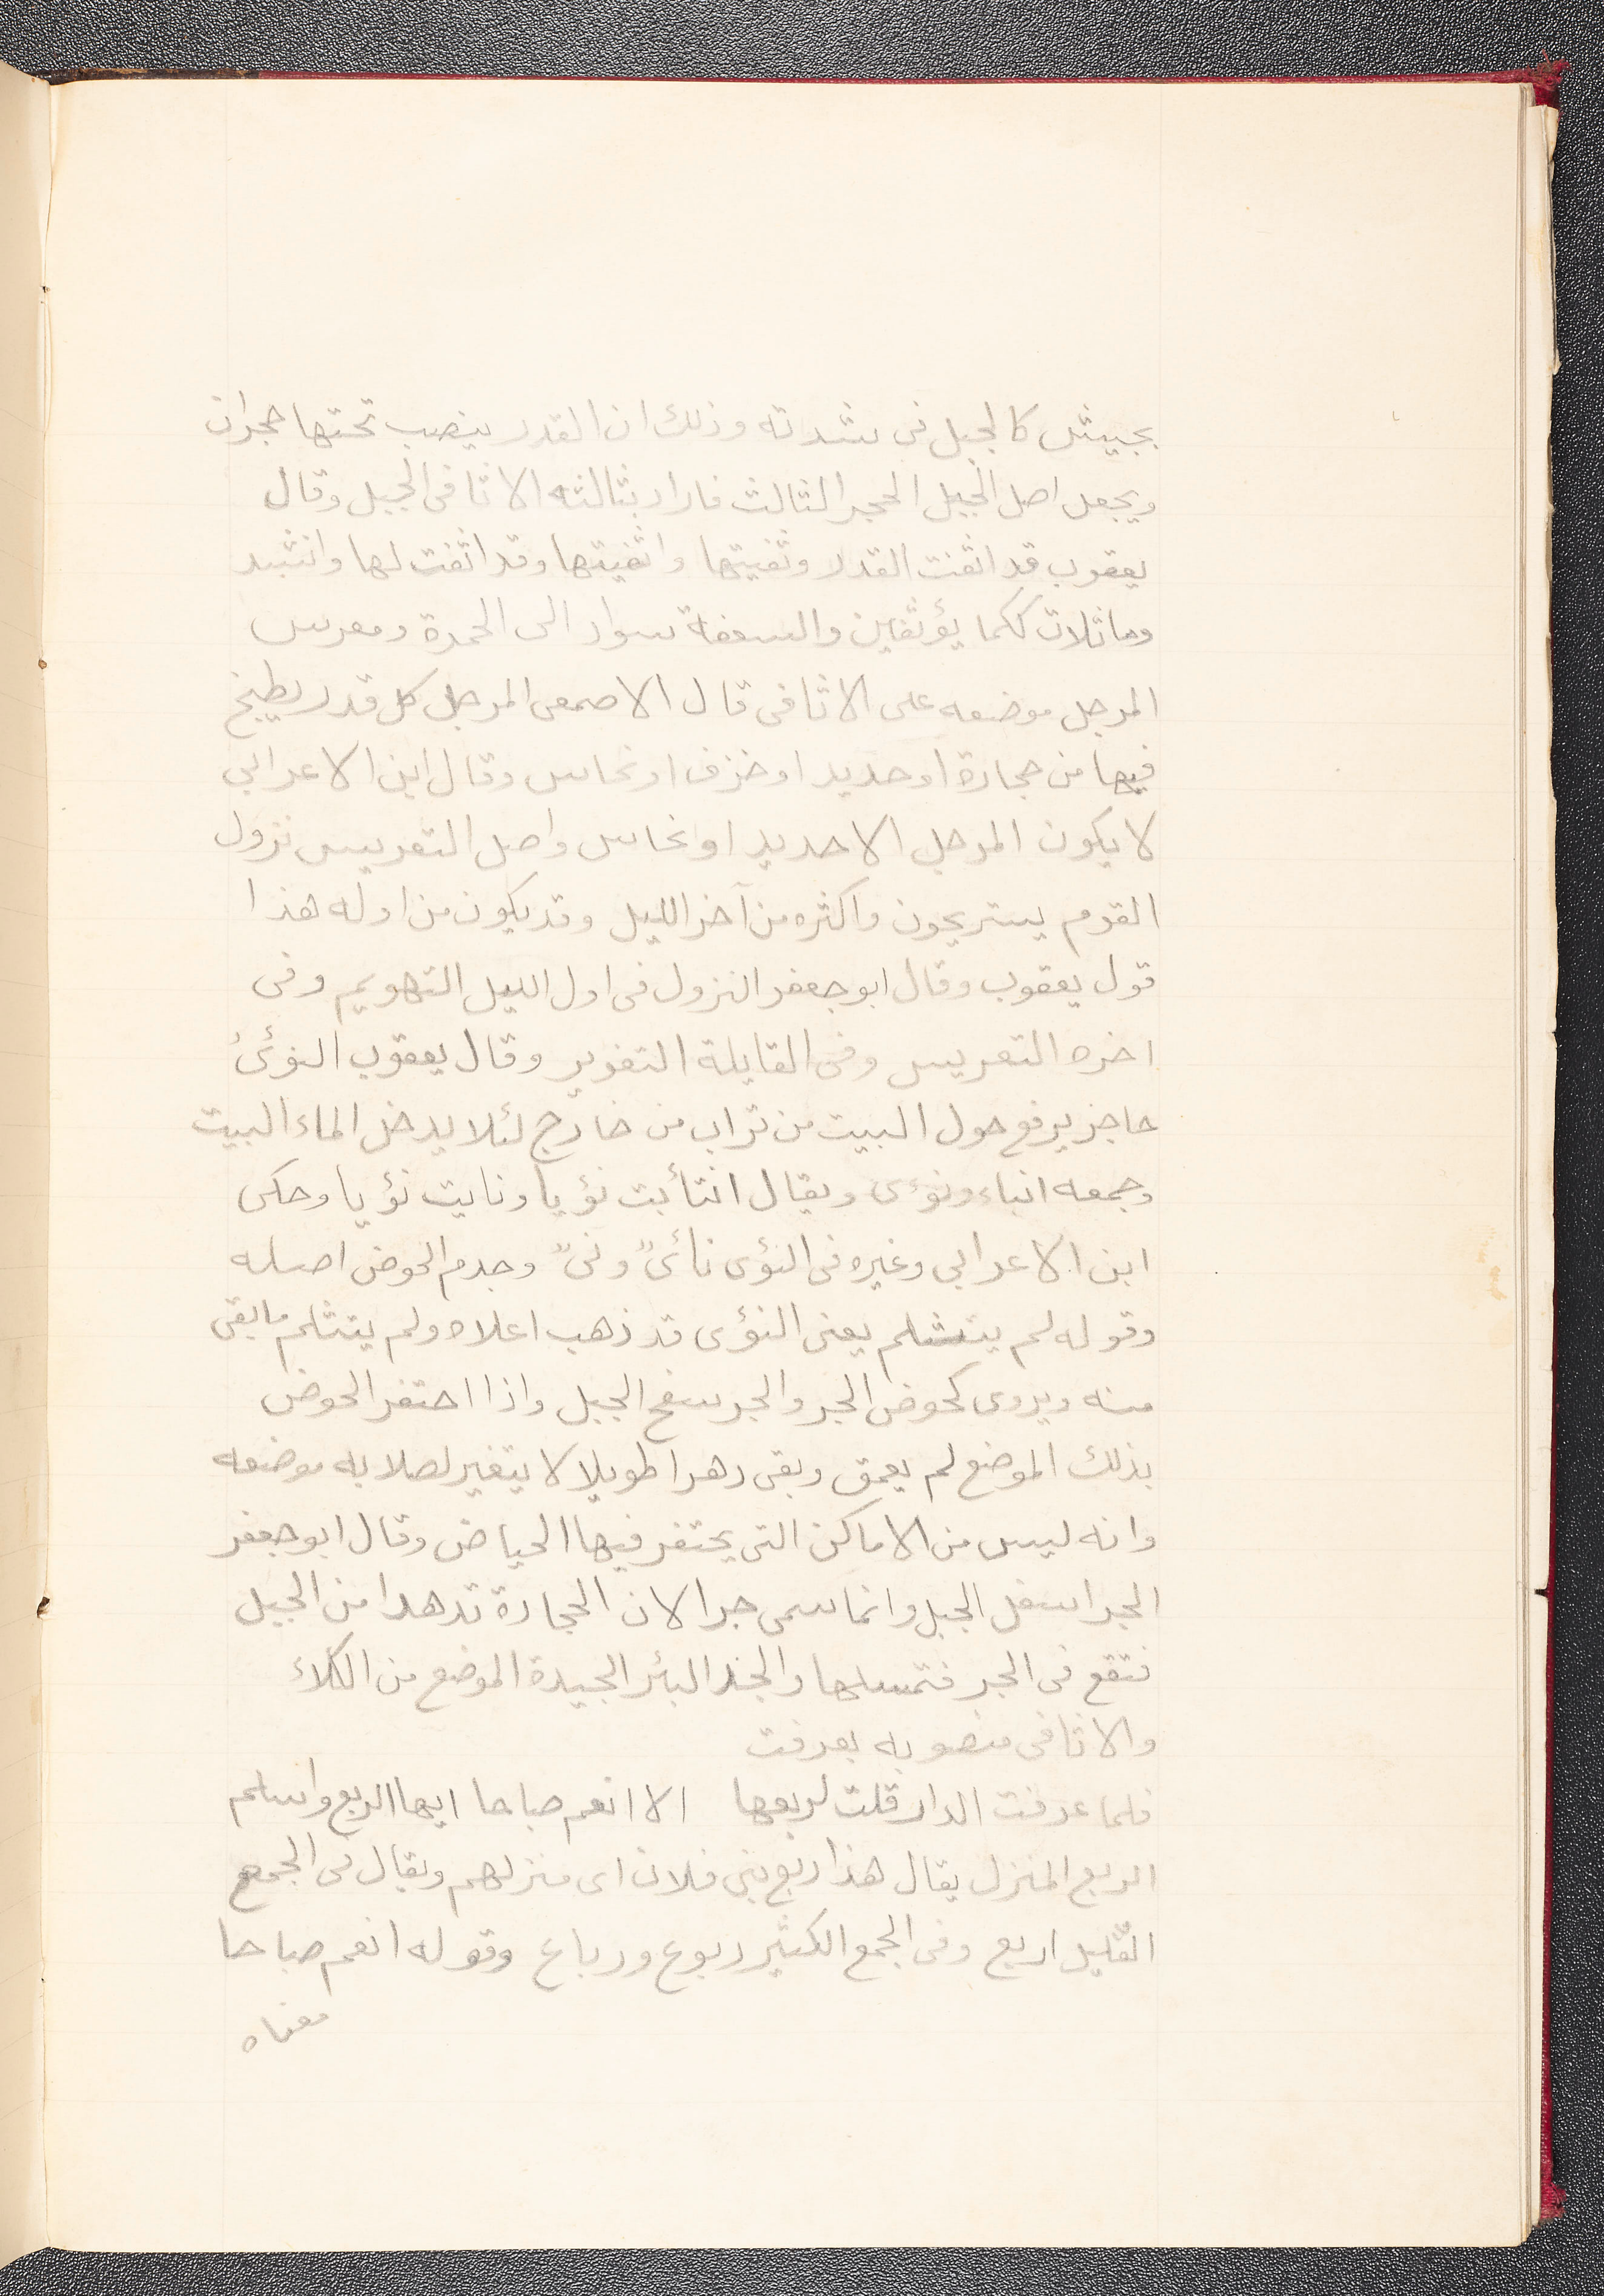 بجيش كالجبل فى شدته وذلك ان القدر ينصب تحتها حجران
ويجعل اصل الجبل الحجر الثالث فاراد بثالثه الاثافى الجبل وقال
يعقوب قد اثفت القدر وثفيتها واثفيتها وقد اثفت لها وانشد
وماثلات ككما يؤثفين والسعفة سواد الى الحمرة ومعرس
المرجل موضعه على الاثافى قال الاصمعى المرجل كل قدر يطبخ
فيها من حجارة او حديد او خزف او نحاس وقال ابن الاعرابي
لا يكون المرجل الا حديد او نحاس واصل التعريس نزول
القوم يستريحون واكثره من آخر الليل وقد يكون من اوله هذا
قول يعقوب وقال ابو جعفر النزول فى اول الليل التهويم وفى
اخره التعريس وفى القايلة التغوير وقال يعقوب النوئىُ
حاجز يرفع حول البيت من تراب من خارج لئلا يدخل الماء البيت
وجمعه انباء ونوءى ويقال انتأيت نؤيا ونايت نؤيا وحكى
ابن الاعرابي وغيره فى النؤى نائىً ونىً وجدم الحوض اصله
وقوله لم يتثلم يعنى النؤى قد ذهب اعلاه ولم يتثلم ما بقى
منه ويروى كحوض الجر والجر سفح الجبل واذا احتفر الحوض
بذلك الموضع لم يعمق وبقى دهرا طويلا لا يتغير لصلابه موضعه
وانه ليس من الاماكن التى يحتفر فيها الحياض وقال ابو جعفر
الجر اسفل الجبل وانما سمى جرا لان الحجارة تدهدا من الجبل
فتقع فى الجر فتمسلها والجد البئر الجيدة الموضع من الكلاء
والاثافى منصوبه بعرفت
فلما عرفت الدار قلت لربعها الا انعم صباحا ايها الربع واسلم
الربع المنزل يقال هذا ربع بنى فلان اى منزلهم ويقال فى الجمع
القليل اربع وفى الجمع الكثير ربوع ورباع وقوله انعم صباحا
معناه